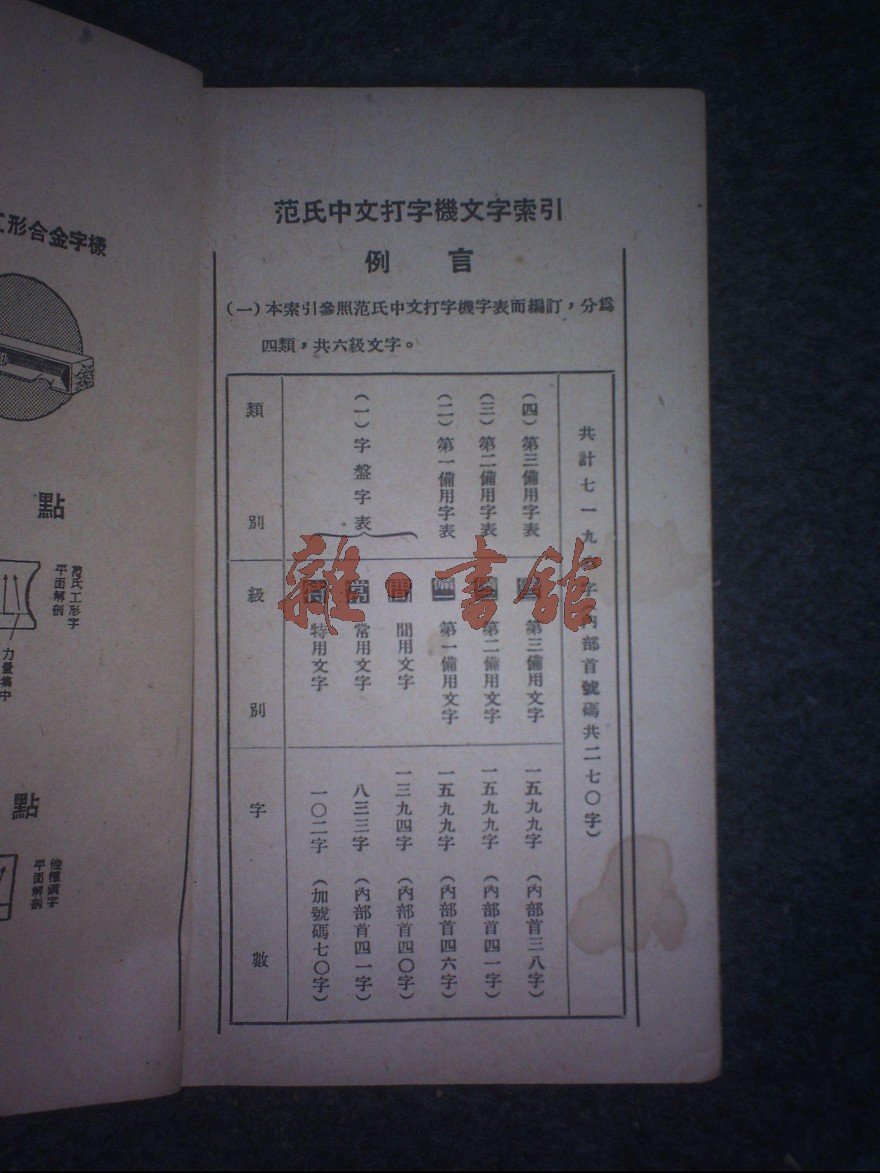 范氏中文打字機文字索引
例言
(一)本索引參照范氏中文打字機字表而編訂,分爲
四類,共六級文字。
類別
(一)字盤字表
(二)第一備用字表
(三)第二備用字表
(四)第三備用字表
級別
特 特用文字
常 常用文字
間 間用文字
第一備用文字
第二備用文字
第三備用文字
字數
一〇二字(加號碼七〇字)
八三三字(內部首四一字)
一三九四字(內部首四〇字)
一五九九字(內部首四六字)
一五九九字(內部首四一字)
一五九九字(內部首三八字)
共計七一九
字內部首號碼共二七〇字)
工形合金字樣
點
范氏工形字
平面解剖
力量集中
點
平面解剖
雜·書館